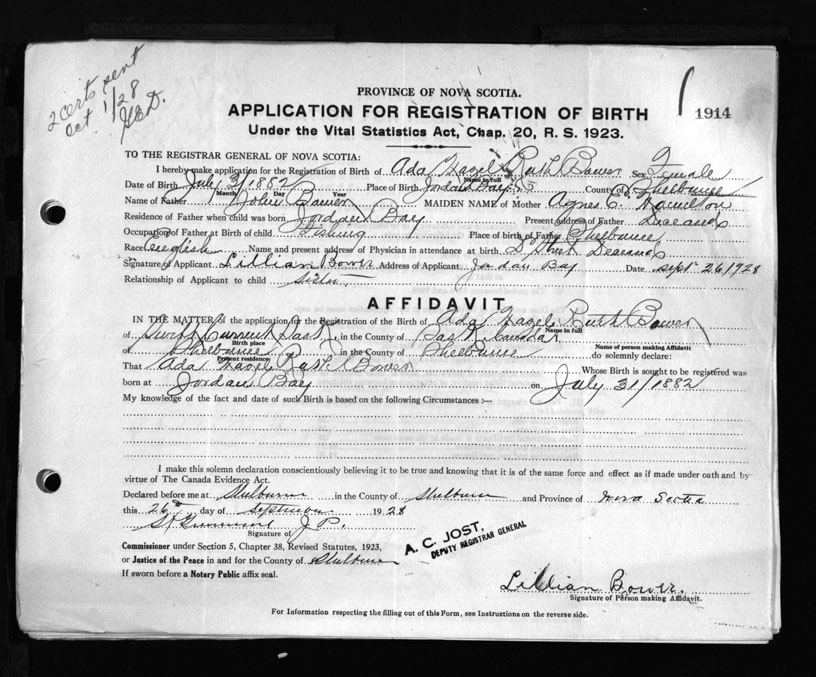 2 certs sent
Oct 1/28
PROVINCE OF NOVA SCOTIA.
1914
APPLICATION FOR REGISTRATION OF BIRTH
Under the Vital Statistics Act, Chap. 20, R. S. 1923.
TO THE REGISTRAR GENERAL OF NOVA SCOTIA:
I hereby make application for the Registration of Birth of Ada Hazel Ruth Bower Sex Female
Name in full
Date of Birth July 31/1882 Place of Birth Jordan Bay County of Shelburne
Month Day Year
Name of Father John Bower MAIDEN NAME of Mother Agnes C. Hamilton
Residence of Father when child was born Jordan Bay Present address of Father Deceased
Occupation of Father at Birth of child Fishing Place of birth of Father Shelburne
Race English Name and present address of Physician in attendance at birth Dr Deceased
Signature of Applicant Lillian Bower Address of Applicant Jordan Bay Date Sept 26 1928
Relationship of Applicant to child Sister
AFFIDAVIT
IN THE MATTER of the application for the Registration of the Birth of Ada Hazel Ruth Bower
Name in full
of Swift Current Sask in the County of Sask Canada I,
Birth place
Name of person making Affidavit
of Shelburne in the County of Shelburne do solemnly declare:
Present residence
That Ada Hazel Ruth Bower Whose Birth is sought to be registered was
born at Jordan Bay on July 31/1882
My knowledge of the fact and date of such Birth is based on the following Circumstances :—
I make this solemn declaration conscientiously believing it to be true and knowing that it is of the same force and effect as if made under oath and by
virtue of The Canada Evidence Act.
Declared before me at Shelburne in the County of Shelburne and Province of Nova Scotia
this 26th day of September 1928
J P.
Signature of
A. C. JOST,
DEPUTY REGISTRAR GENERAL
Commissioner under Section 5, Chapter 38, Revised Statutes, 1923,
or Justice of the Peace in and for the County of Shelburne
If sworn before a Notary Public affix seal.
Lillian Bower.
Signature of Person making Affidavit.
For Information respecting the filling out of this Form, see Instructions on the reverse side.